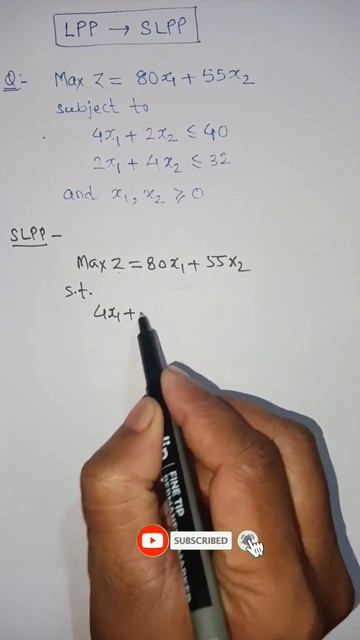 LPP → SLPP
Q:- Max Z = 80x₁ + 55x₂
subject to
4x₁ + 2x₂ ≤ 40
2x₁ + 4x₂ ≤ 32
and x₁, x₂ ≥ 0
SLPP -
Max Z = 80x₁ + 55x₂
s.t.
4x₁ +
FINE TIP
SUBSCRIBED